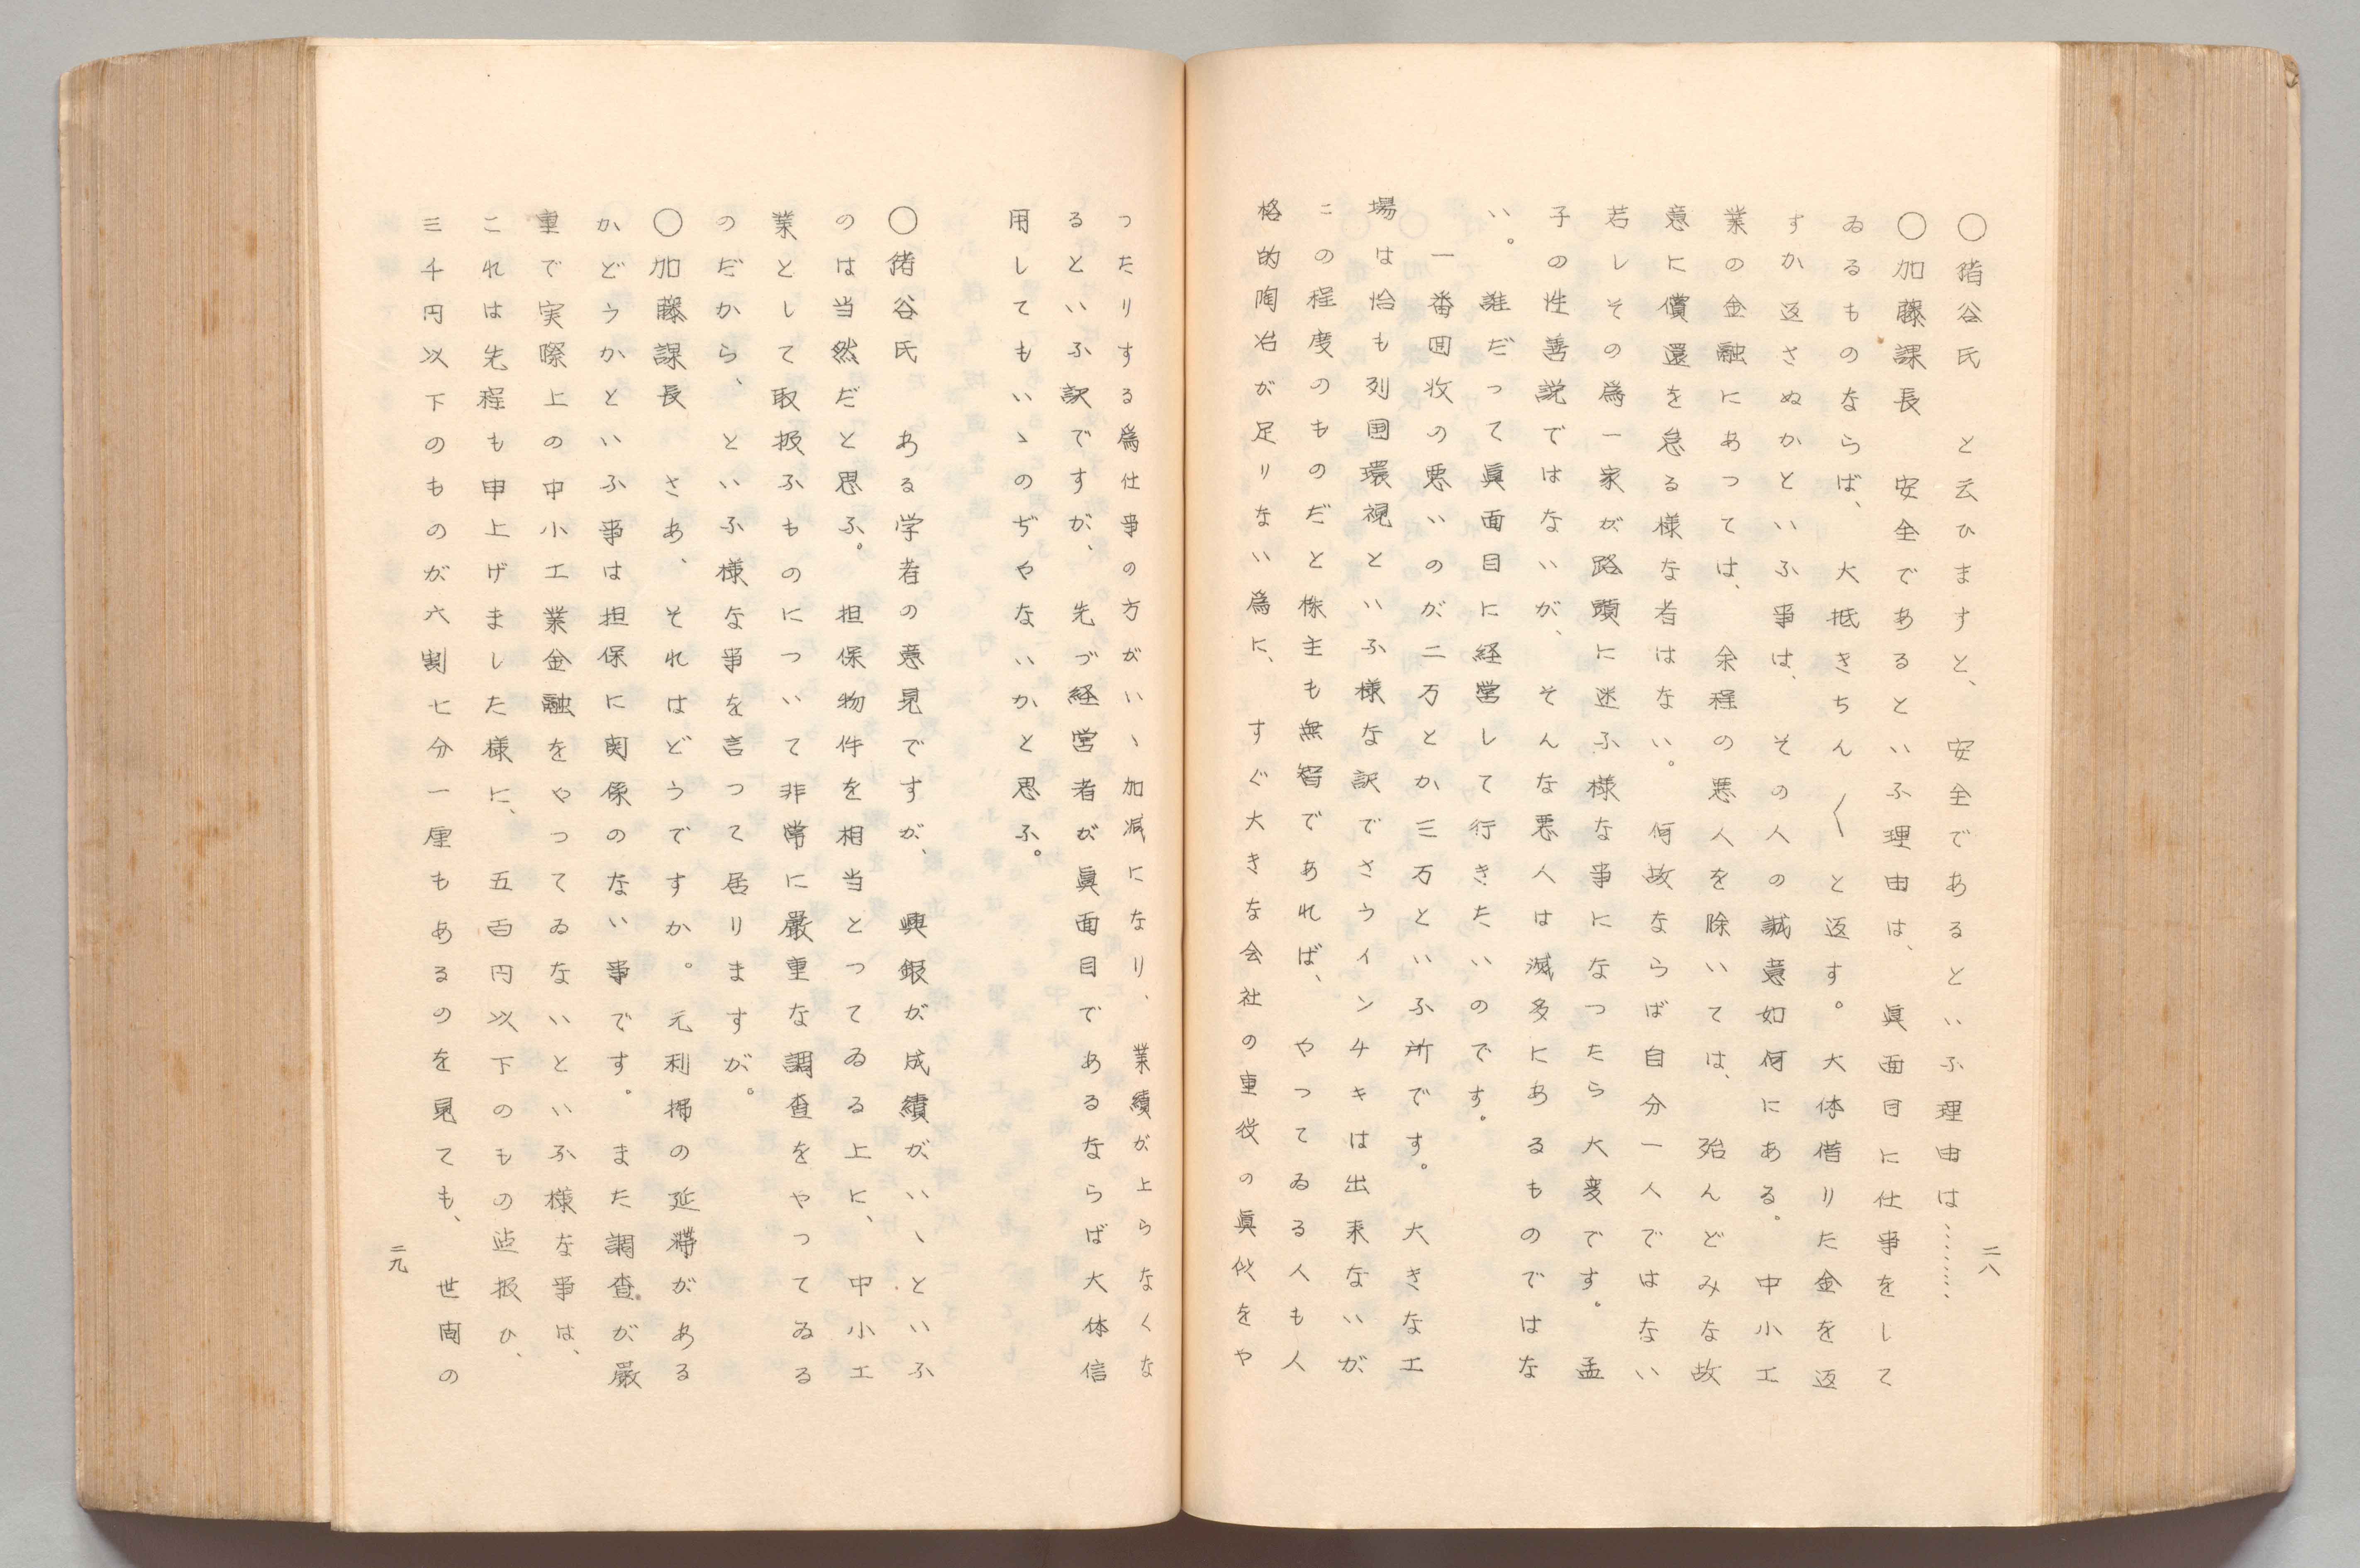 二八
〇猪谷氏　と云ひますと、安全であるといふ理由は………
〇加藤課長　安全であるといふ理由は、眞面目に仕事をして
ゐるものならば、大抵きちん〱と返す。大体借りた金を返
すか返さぬかといふ事は、その人の誠意如何にある。中小工
業の金融にあっては、余程の悪人を除いては、殆んどみな故
意に償還を怠る様な者はない。何故ならば自分一人ではない
若しその爲一家が路頭に迷ふ様な事になったら大変です。孟
子の性善説ではないが、そんな悪人は滅多にあるものではな
い。誰だって眞面目に経営して行きたいのです。
一番囬收の悪いのが二万とか三万といふ所です。大きな工
場は恰も列国環視といふ様な訳でさうインチキは出来ないが
この程度のものだと株主も無智であれば、やってゐる人も人
格的陶冶が足りない爲に、すぐ大きな会社の重役の眞似をや
つたりする爲仕事の方がいゝ加減になり、業績が上らなくな
るといふ訳ですが、先づ経営者が眞面目であるならば大体信
用してもいゝのぢやないかと思ふ。
〇猪谷氏　ある学者の意見ですが、興銀が成績がいゝといふ
のは当然だと思ふ。担保物件を相当とってゐる上に、中小工
業として取扱ふものについて非常に厳重な調査をやってゐる
のだから、といふ様な事を言って居りますが。
〇加藤課長　さあ、それはどうですか。元利掃の延滞がある
かどうかといふ事は担保に関係のない事です。また調査が厳
重で実際上の中小工業金融をやってゐないといふ様な事は、
これは先程も申上げました様に、五百円以下のもの迠扱ひ、
三千円以下のものが六割七分一厘もあるのを見ても、世間の
二九